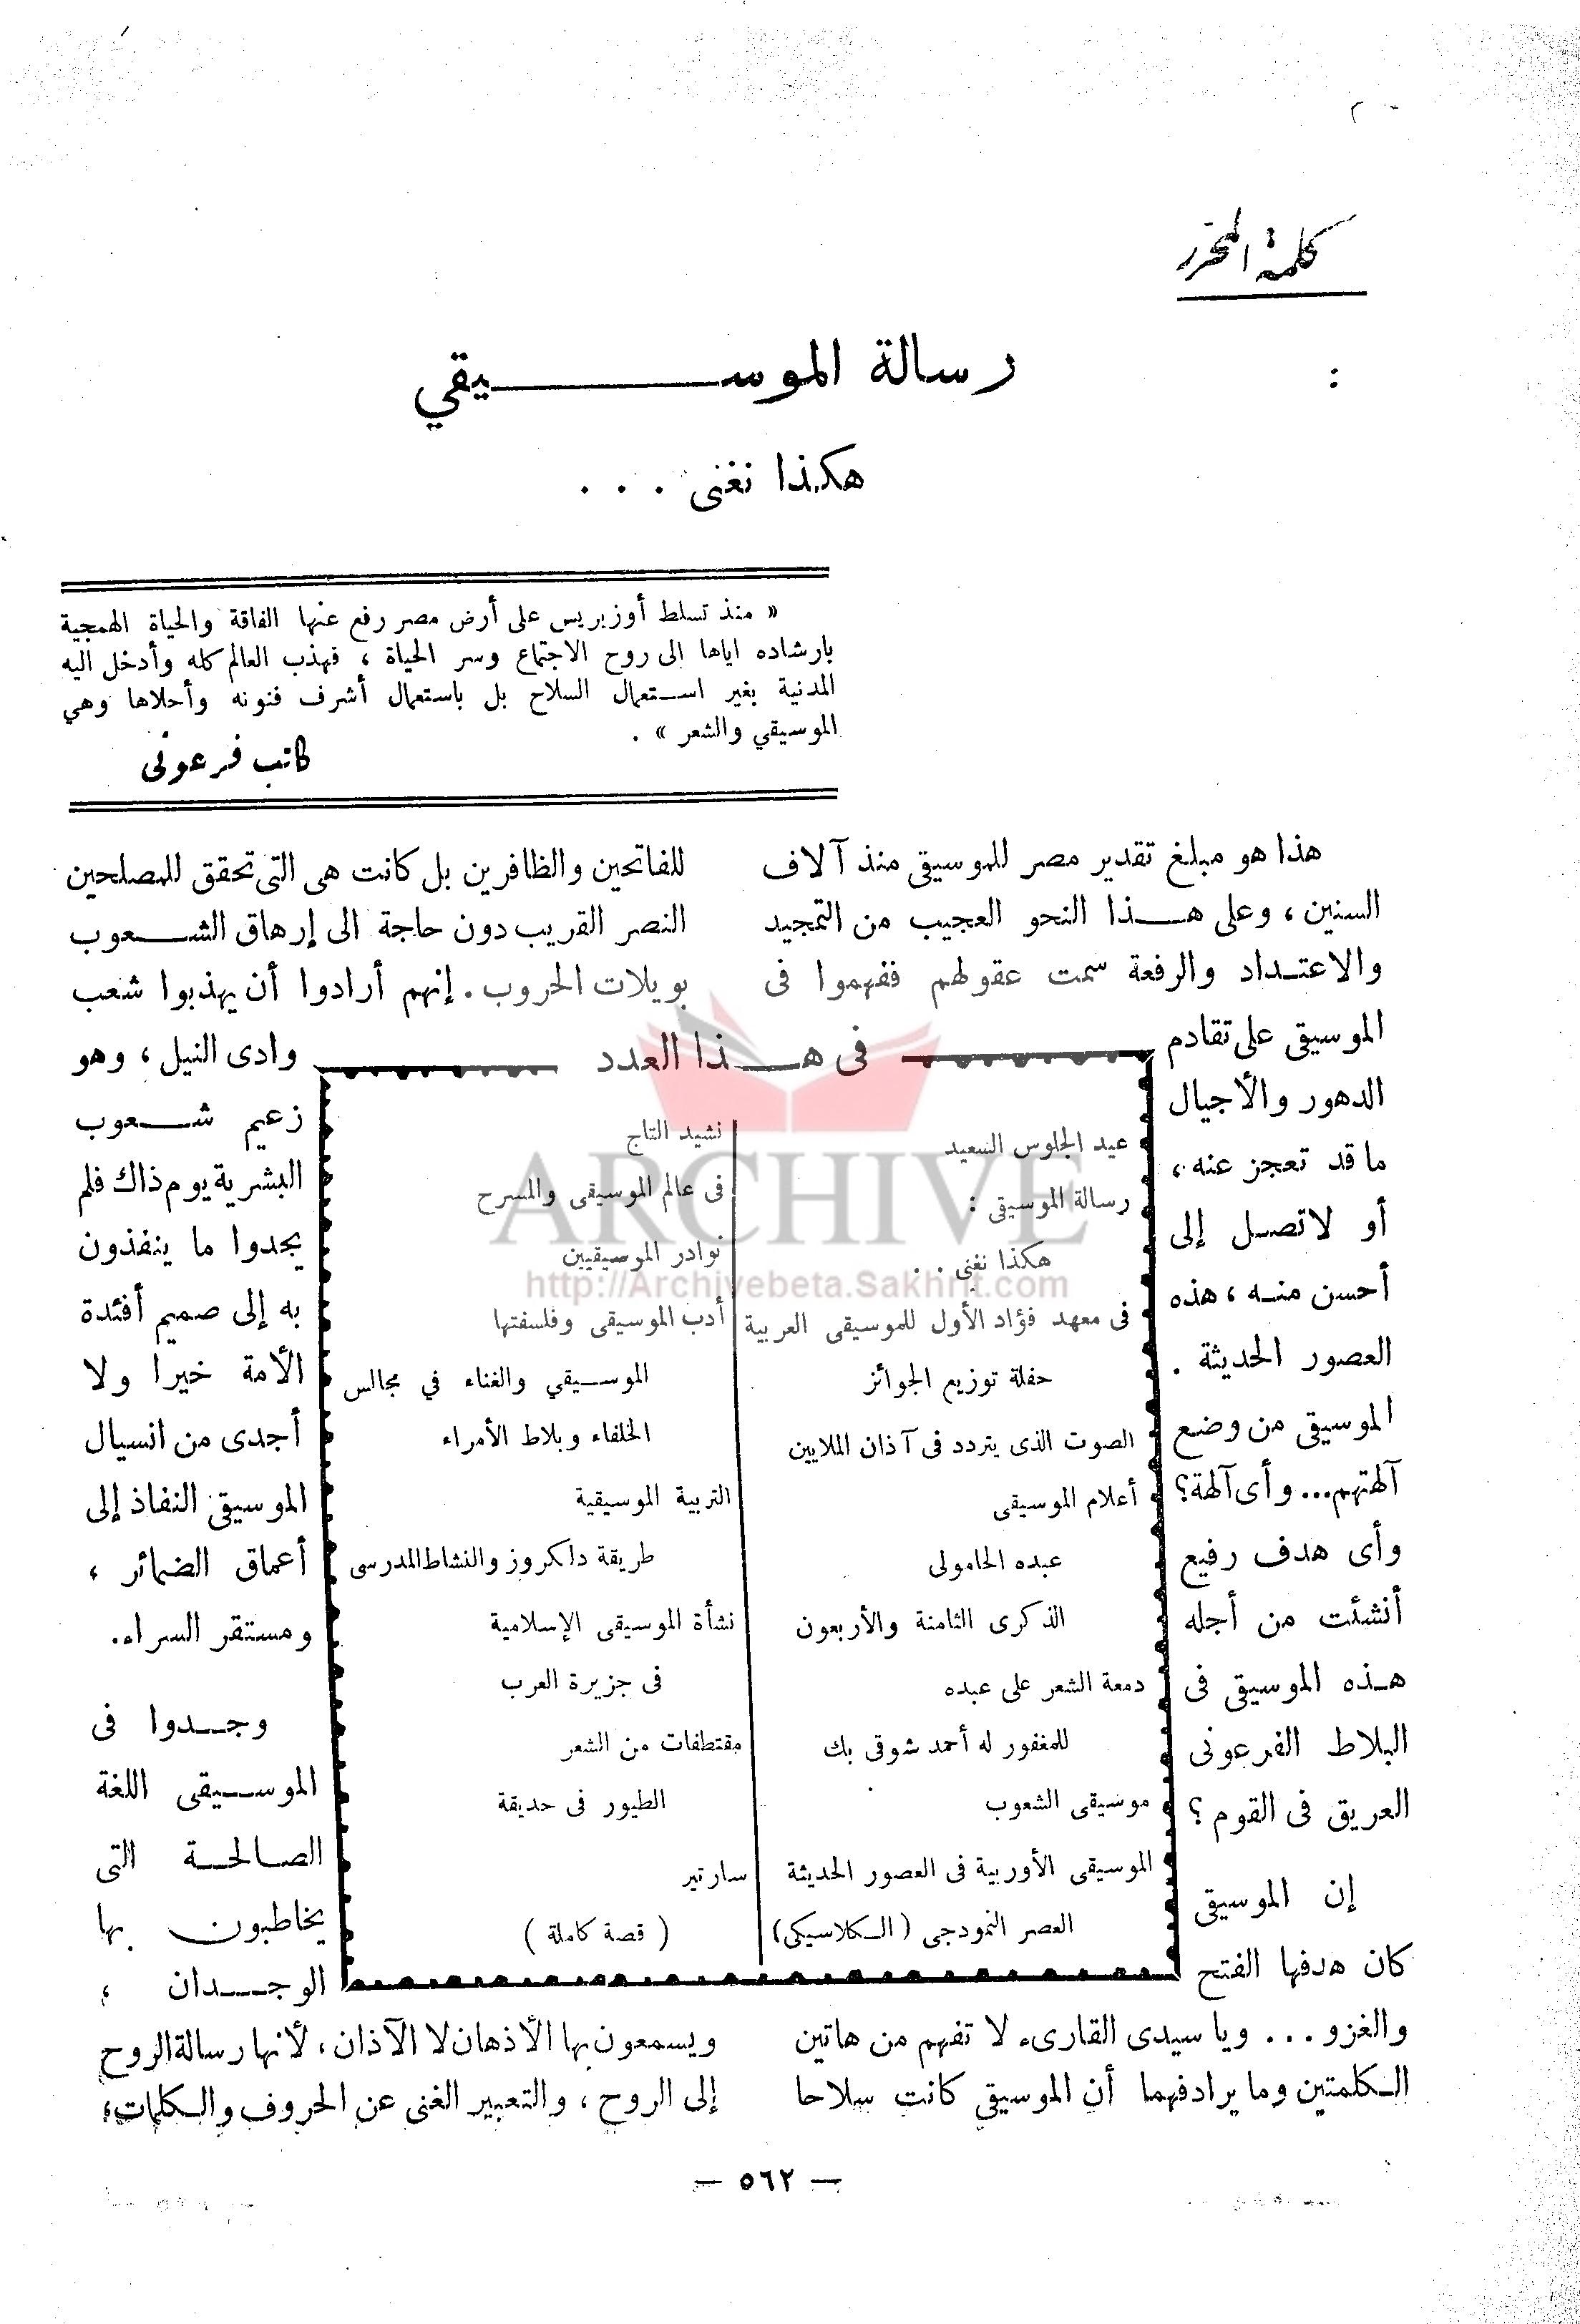 كلمة المحرر
رسالة الموسيقي
:
هكذا نغنى . . .
« منذ تسلط أوزيريس على أرض مصر رفع عنها الفاقة والحياة الهمجية
بارشاده اياها الى روح الاجتماع وسر الحياة ، فهذب العالم كله وأدخل اليه
المدنية بغير استعمال السلاح بل باستعمال أشرف فنونه وأحلاها وهي
الموسيقي والشعر » .
كاتب فرعونى
هذا هو مبلغ تقدير مصر للموسيقى منذ آلاف
السنين ، وعلى هذا النحو العجيب من التمجيد
والاعتداد والرفعة سمت عقولهم ففهموا فى
الموسيقى على تقادم
الدهور والأجيال
ما قد تعجز عنه ،
أو لا تصل إلى
أحسن منه ، هذه
العصور الحديثة .
الموسيقى من وضع
آلهتهم... وأى آلهة؟
وأى هدف رفيع
أنشئت من أجله
هذه الموسيقى فى
البلاط الفرعونى
العريق فى القوم ؟
إن الموسيقى
كان هدفها الفتح
والغزو ... ويا سيدى القارىء لا تفهم من هاتين
الكلمتين وما يرادفهما أن الموسيقى كانت سلاحا
للفاتحين والظافرين بل كانت هى التى تحقق للمصلحين
النصر القريب دون حاجة الى إرهاق الشعوب
بويلات الحروب . إنهم أرادوا أن يهذبوا شعب
وادى النيل ، وهو
زعيم شعوب
البشرية يوم ذاك فلم
يجدوا ما ينفذون
به إلى صميم أفئدة
الأمة خيرا ولا
أجدى من انسيال
الموسيقى النفاذ إلى
أعماق الضمائر ،
ومستقر السراء.
وجدوا فى
الموسيقى اللغة
الصالحة التى
يخاطبون بها
الوجدان ،
ويسمعون بها الأذهان لا الآذان ، لأنها رسالة الروح
إلى الروح ، والتعبير الغنى عن الحروف والكلمات ؛
فى هذا العدد
عيد الجلوس السعيد
رسالة الموسيقى :
هكذا نغنى . .
فى معهد فؤاد الأول للموسيقى العربية
حفلة توزيع الجوائز
الصوت الذى يتردد فى آذان الملايين
أعلام الموسيقى
عبده الحامولى
الذكرى الثامنة والأربعون
دمعة الشعر على عبده
للمغفور له أحمد شوقى بك
موسيقى الشعوب
الموسيقى الأوربية فى العصور الحديثة
العصر النموذجى ( الكلاسيكى )
نشيد التاج
فى عالم الموسيقى والمسرح
نوادر الموسيقيين
أدب الموسيقى وفلسفتها
الموسيقي والغناء في مجالس
الخلفاء وبلاط الأمراء
التربية الموسيقية
طريقة دلكروز والنشاط المدرسى
نشأة الموسيقى الإسلامية
فى جزيرة العرب
مقتطفات من الشعر
الطيور فى حديقة
سارتير
( قصة كاملة )
ARCHIVE
http://Archivebeta.Sakhrit.com
— ٥٦٢ —